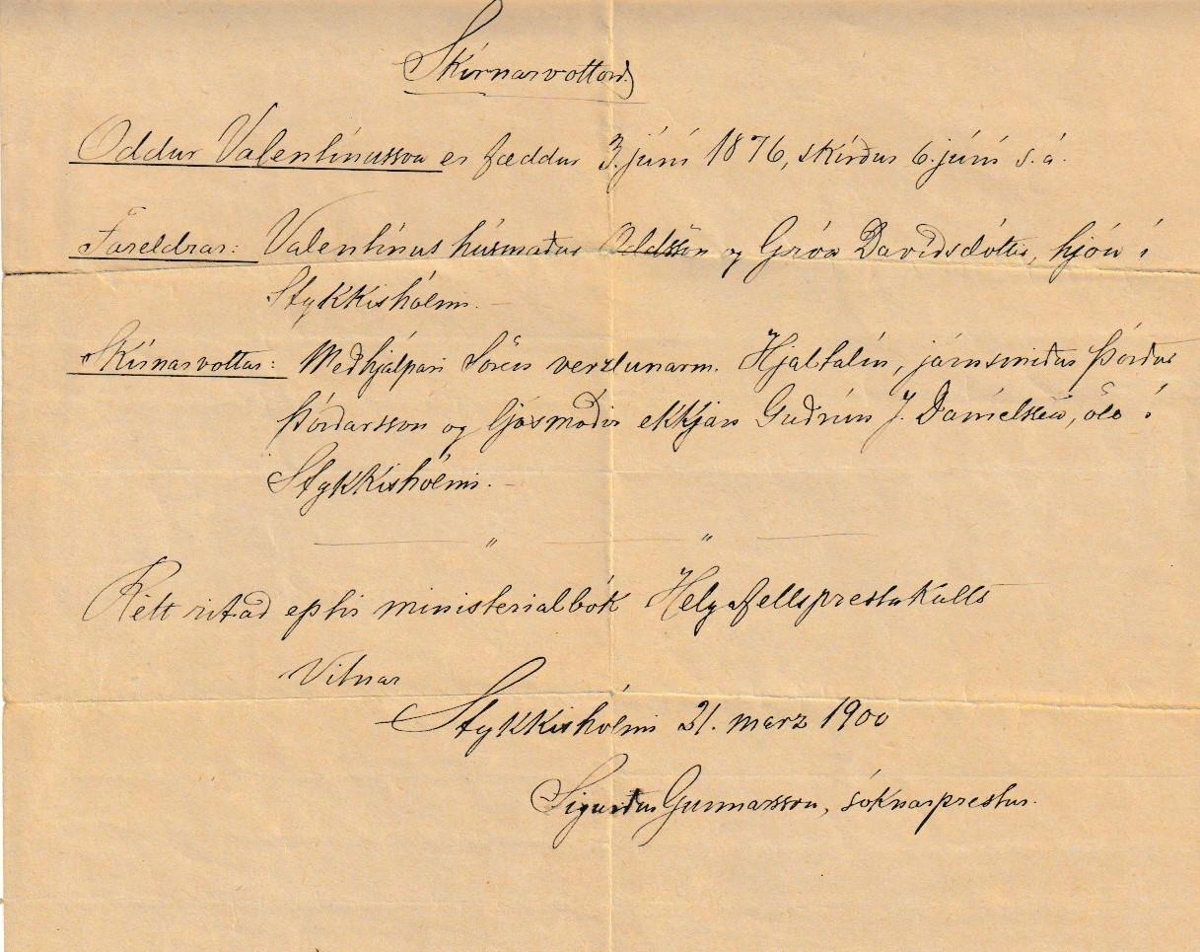 Skírnarvottorð
Oddur Valentínusson er fæddur 3. júní 1876, skírður 6. júní s. á.
Foreldrar: Valentínus húsmaður Oddsson og Gróa Davíðsdóttir, hjón í
Stykkishólmi. –
Skírnarvottar: Meðhjálpari Sören verzlunarm. Hjaltalín, járnsmiður Þórður
Þórðarsson og ljósmóðir ekkjan Guðrún J. Daníelsen, öll í
Stykkishólmi. –
— " — " —
Rétt ritað eptir ministerialbók Helgafellsprestakalls
Vitnar
Stykkishólmi 21. marz 1900
Sigurður Gunnarsson, sóknarprestur.